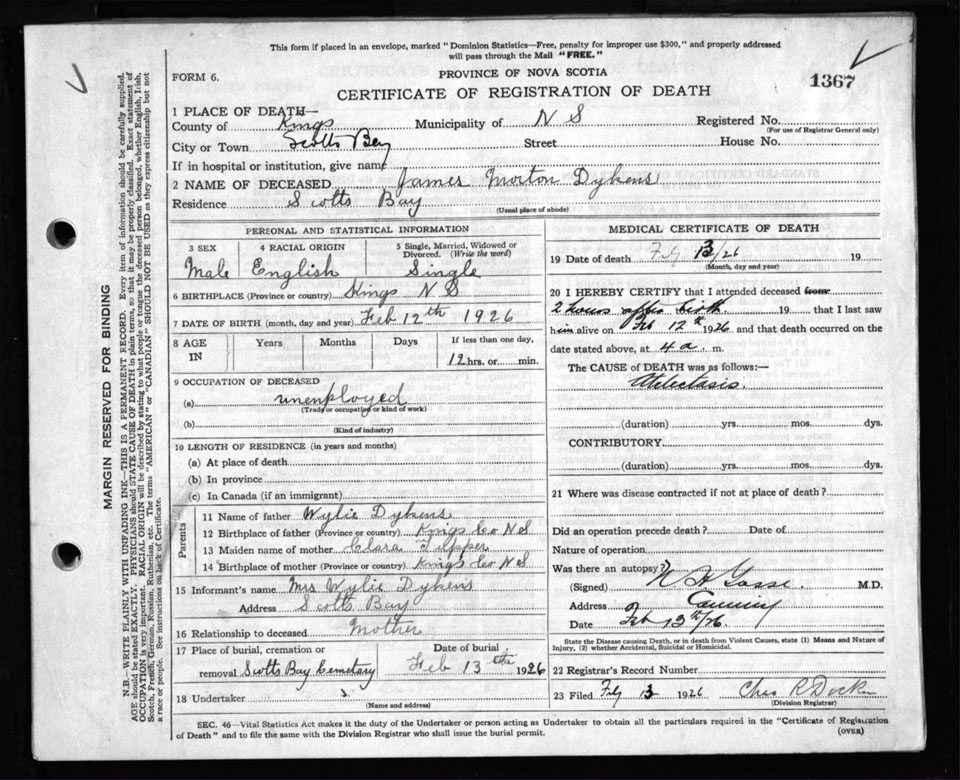 This form if placed in an envelope, marked "Dominion Statistics—Free, penalty for improper use $300," and properly addressed
will pass through the Mail "FREE."
FORM 6.
PROVINCE OF NOVA SCOTIA
1367
CERTIFICATE OF REGISTRATION OF DEATH
1 PLACE OF DEATH—
County of Kings Municipality of N S Registered No.
(For use of Registrar General only)
City or Town Scotts Bay Street House No.
If in hospital or institution, give name
2 NAME OF DECEASED James Morton Dykens
Residence Scotts Bay
(Usual place of abode)
PERSONAL AND STATISTICAL INFORMATION
3 SEX 4 RACIAL ORIGIN 5 Single, Married, Widowed or Divorced. (Write the word)
Male English Single
6 BIRTHPLACE (Province or country) Kings N S
7 DATE OF BIRTH (month, day and year) Feb 12th 1926
8 AGE IN Years Months Days If less than one day,
12 hrs. or min.
9 OCCUPATION OF DECEASED
(a) unenployed
(Trade or occupation or kind of work)
(b)
(Kind of industry)
10 LENGTH OF RESIDENCE (in years and months)
(a) At place of death
(b) In province
(c) In Canada (if an immigrant)
Parents
11 Name of father Wylie Dykens
12 Birthplace of father (Province or country) Kings Co N S
13 Maiden name of mother Clara Tupper
14 Birthplace of mother (Province or country) Kings Co N S
15 Informant's name Mrs Wylie Dykens
Address Scotts Bay
16 Relationship to deceased Mother
17 Place of burial, cremation or removal Scotts Bay Cemetary
Date of burial Feb 13th 1926
18 Undertaker
(Name and address)
MEDICAL CERTIFICATE OF DEATH
19 Date of death 13/26 19
(Month, day and year)
20 I HEREBY CERTIFY that I attended deceased from
2 hours after birth 19 that I last saw
him alive on Feb 12th 1926 and that death occurred on the
date stated above, at 4 a. m.
The CAUSE of DEATH was as follows:—
Atelectasis.
(duration) yrs. mos. dys.
CONTRIBUTORY
(duration) yrs. mos. dys.
21 Where was disease contracted if not at place of death?
Did an operation precede death? Date of
Nature of operation
Was there an autopsy?
(Signed) M.D.
Address Canning
Date Feb 13th/26
State the Disease causing Death, or in death from Violent Causes, state (1) Means and Nature of
Injury, (2) whether Accidental, Suicidal or Homicidal.
22 Registrar's Record Number
23 Filed 13 1926 Chas R
(Division Registrar)
SEC. 46—Vital Statistics Act makes it the duty of the Undertaker or person acting as Undertaker to obtain all the particulars required in the "Certificate of Registration
of Death" and to file the same with the Division Registrar who shall issue the burial permit.
(OVER)
MARGIN RESERVED FOR BINDING
N.B.—WRITE PLAINLY WITH UNFADING INK—THIS IS A PERMANENT RECORD. Every item of information should be carefully supplied.
AGE should be stated EXACTLY. PHYSICIANS should STATE CAUSE OF DEATH in plain terms, so that it may be properly classified. Exact statement of
OCCUPATION is very important. RACIAL ORIGIN will be described by stating to what people or tongue the deceased person belonged, whether English, Irish,
Scotch, French, German, Russian, Ruthenian, etc. The terms "AMERICAN" or "CANADIAN" SHOULD NOT BE USED as they express citizenship but not
a race or people. See instructions on back of Certificate.